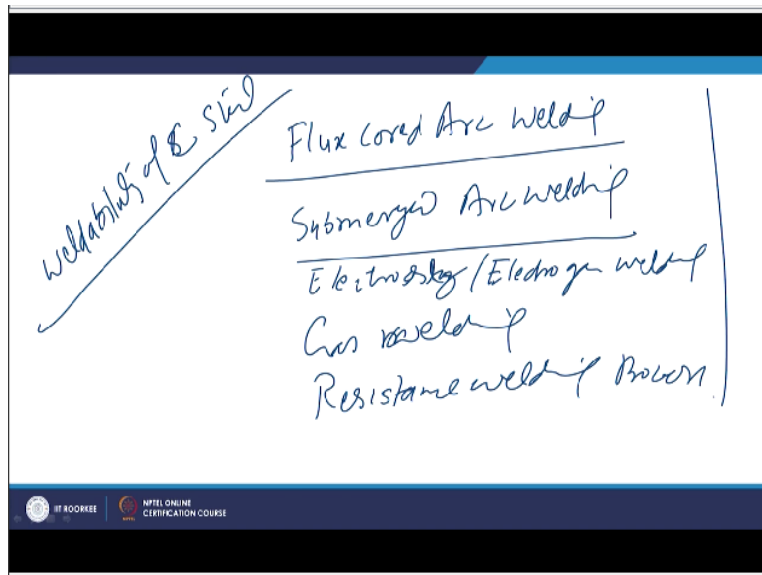 weldability of C Steel
Flux Cored Arc Welding
Submerged Arc welding
Electroslag/Electrogas welding
Gas welding
Resistance welding Process
IIT ROORKEE
NPTEL ONLINE
CERTIFICATION COURSE